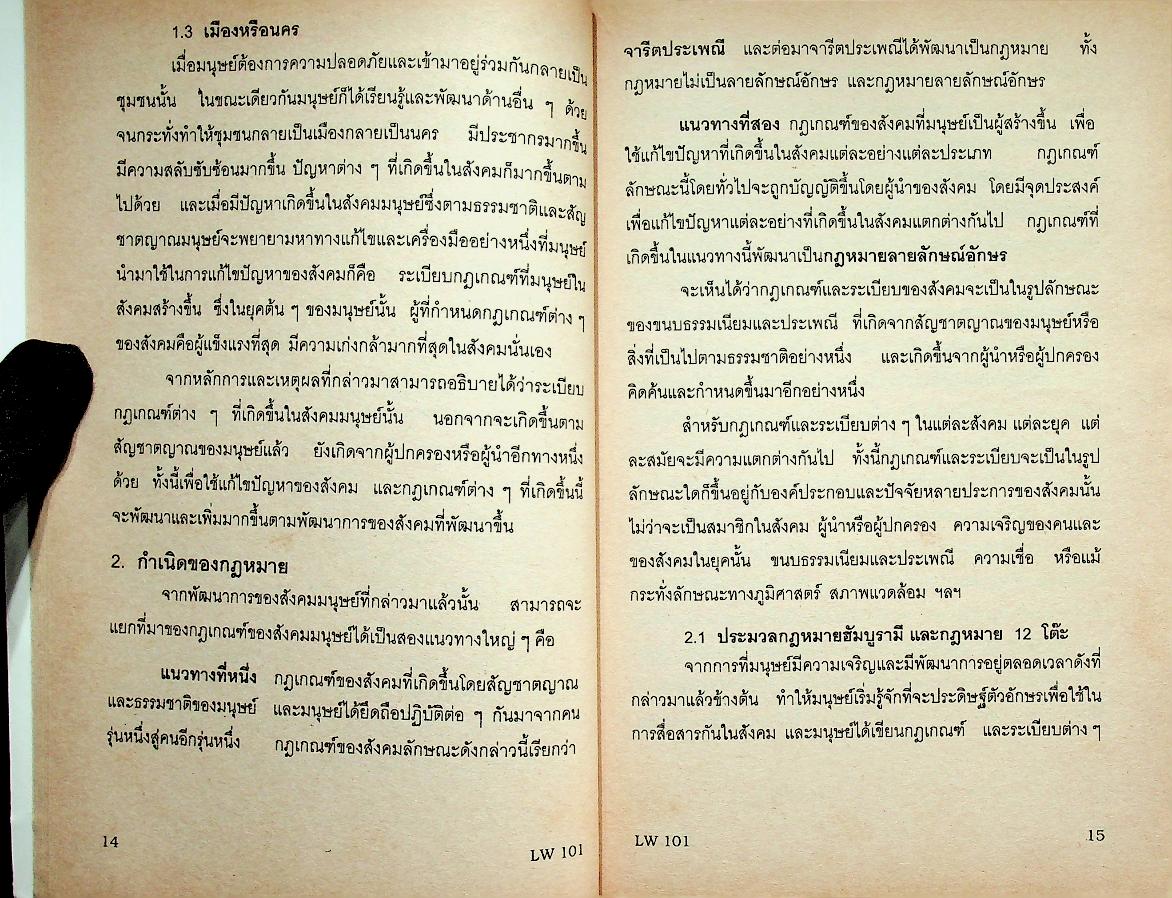 1.3 เมืองหรือนคร
เมื่อมนุษย์ต้องการความปลอดภัยและเข้ามาอยู่ร่วมกันกลายเป็น
ชุมชนนั้น ในขณะเดียวกันมนุษย์ก็ได้เรียนรู้และพัฒนาด้านอื่น ๆ ด้วย
จนกระทั่งทำให้ชุมชนกลายเป็นเมืองกลายเป็นนคร มีประชากรมากขึ้น
มีความสลับซับซ้อนมากขึ้น ปัญหาต่าง ๆ ที่เกิดขึ้นในสังคมก็มากขึ้นตาม
ไปด้วย และเมื่อมีปัญหาเกิดขึ้นในสังคมมนุษย์ซึ่งตามธรรมชาติและสัญ
ชาตญาณมนุษย์จะพยายามหาทางแก้ไขและเครื่องมืออย่างหนึ่งที่มนุษย์
นำมาใช้ในการแก้ไขปัญหาของสังคมก็คือ ระเบียบกฎเกณฑ์ที่มนุษย์ใน
สังคมสร้างขึ้น ซึ่งในยุคต้น ๆ ของมนุษย์นั้น ผู้ที่กำหนดกฎเกณฑ์ต่าง ๆ
ของสังคมคือผู้แข็งแรงที่สุด มีความเก่งกล้ามากที่สุดในสังคมนั่นเอง
จากหลักการและเหตุผลที่กล่าวมาสามารถอธิบายได้ว่าระเบียบ
กฎเกณฑ์ต่าง ๆ ที่เกิดขึ้นในสังคมมนุษย์นั้น นอกจากจะเกิดขึ้นตาม
สัญชาตญาณของมนุษย์แล้ว ยังเกิดจากผู้ปกครองหรือผู้นำอีกทางหนึ่ง
ด้วย ทั้งนี้เพื่อใช้แก้ไขปัญหาของสังคม และกฎเกณฑ์ต่าง ๆ ที่เกิดขึ้นนี้
จะพัฒนาและเพิ่มมากขึ้นตามพัฒนาการของสังคมที่พัฒนาขึ้น
2. กำเนิดของกฎหมาย
จากพัฒนาการของสังคมมนุษย์ที่กล่าวมาแล้วนั้น สามารถจะ
แยกที่มาของกฎเกณฑ์ของสังคมมนุษย์ได้เป็นสองแนวทางใหญ่ ๆ คือ
แนวทางที่หนึ่ง กฎเกณฑ์ของสังคมที่เกิดขึ้นโดยสัญชาตญาณ
และธรรมชาติของมนุษย์ และมนุษย์ได้ยึดถือปฏิบัติต่อ ๆ กันมาจากคน
รุ่นหนึ่งสู่คนอีกรุ่นหนึ่ง กฎเกณฑ์ของสังคมลักษณะดังกล่าวนี้เรียกว่า
14
LW 101
จารีตประเพณี และต่อมาจารีตประเพณีได้พัฒนาเป็นกฎหมาย ทั้ง
กฎหมายไม่เป็นลายลักษณ์อักษร และกฎหมายลายลักษณ์อักษร
แนวทางที่สอง กฎเกณฑ์ของสังคมที่มนุษย์เป็นผู้สร้างขึ้น เพื่อ
ใช้แก้ไขปัญหาที่เกิดขึ้นในสังคมแต่ละอย่างแต่ละประเภท กฎเกณฑ์
ลักษณะนี้โดยทั่วไปจะถูกบัญญัติขึ้นโดยผู้นำของสังคม โดยมีจุดประสงค์
เพื่อแก้ไขปัญหาแต่ละอย่างที่เกิดขึ้นในสังคมแตกต่างกันไป กฎเกณฑ์ที่
เกิดขึ้นในแนวทางนี้พัฒนาเป็นกฎหมายลายลักษณ์อักษร
จะเห็นได้ว่ากฎเกณฑ์และระเบียบของสังคมจะเป็นในรูปลักษณะ
ของขนบธรรมเนียมและประเพณี ที่เกิดจากสัญชาตญาณของมนุษย์หรือ
สิ่งที่เป็นไปตามธรรมชาติอย่างหนึ่ง และเกิดขึ้นจากผู้นำหรือผู้ปกครอง
คิดค้นและกำหนดขึ้นมาอีกอย่างหนึ่ง
สำหรับกฎเกณฑ์และระเบียบต่าง ๆ ในแต่ละสังคม แต่ละยุค แต่
ละสมัยจะมีความแตกต่างกันไป ทั้งนี้กฎเกณฑ์และระเบียบจะเป็นในรูป
ลักษณะใดก็ขึ้นอยู่กับองค์ประกอบและปัจจัยหลายประการของสังคมนั้น
ไม่ว่าจะเป็นสมาชิกในสังคม ผู้นำหรือผู้ปกครอง ความเจริญของคนและ
ของสังคมในยุคนั้น ขนบธรรมเนียมและประเพณี ความเชื่อ หรือแม้
กระทั่งลักษณะทางภูมิศาสตร์ สภาพแวดล้อม ฯลฯ
2.1 ประมวลกฎหมายฮัมบูรามี และกฎหมาย 12 โต๊ะ
จากการที่มนุษย์มีความเจริญและมีพัฒนาการอยู่ตลอดเวลาดังที่
กล่าวมาแล้วข้างต้น ทำให้มนุษย์เริ่มรู้จักที่จะประดิษฐ์ตัวอักษรเพื่อใช้ใน
การสื่อสารกันในสังคม และมนุษย์ได้เขียนกฎเกณฑ์ และระเบียบต่าง ๆ
LW 101
15